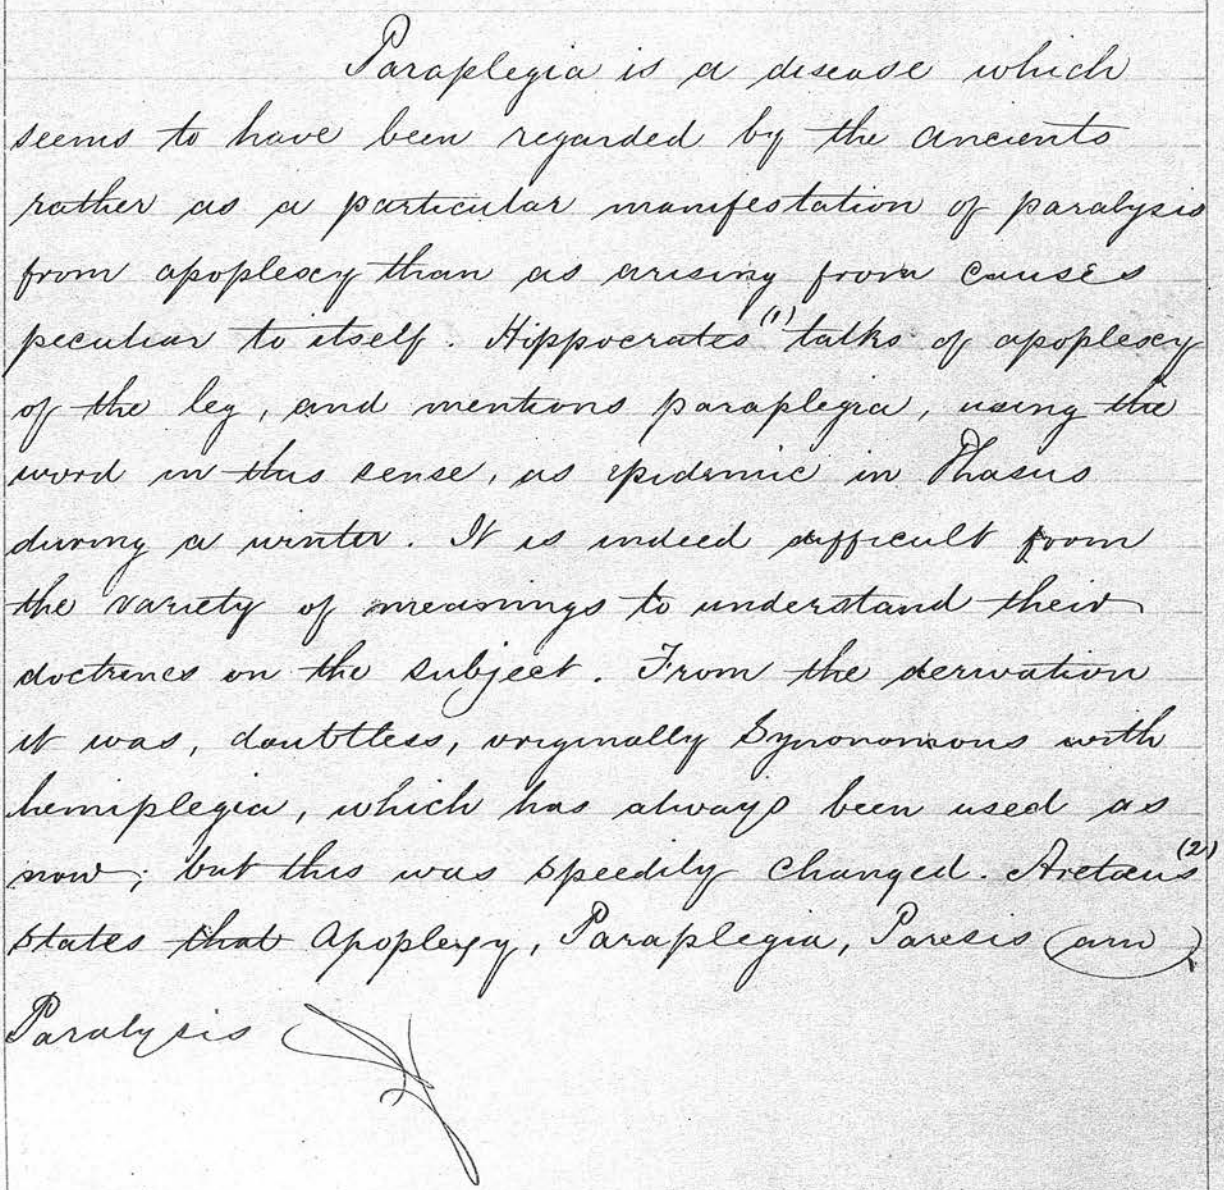 Paraplegia is a disease which
seems to have been regarded by the ancients
rather as a particular manifestation of paralysis
from apoplexy than as arising from causes
peculiar to itself. Hippocrates (1) talks of apoplexy
of the leg, and mentions paraplegia, using the
word in this sense, as epidemic in Thasus
during a winter. It is indeed difficult from
the variety of meanings to understand their
doctrines on the subject. From the derivation
it was, doubtless, originally Synonomous with
hemiplegia, which has always been used as
now; but this was speedily changed. Aretæus (2)
states that Apoplexy, Paraplegia, Paresis are
Paralysis